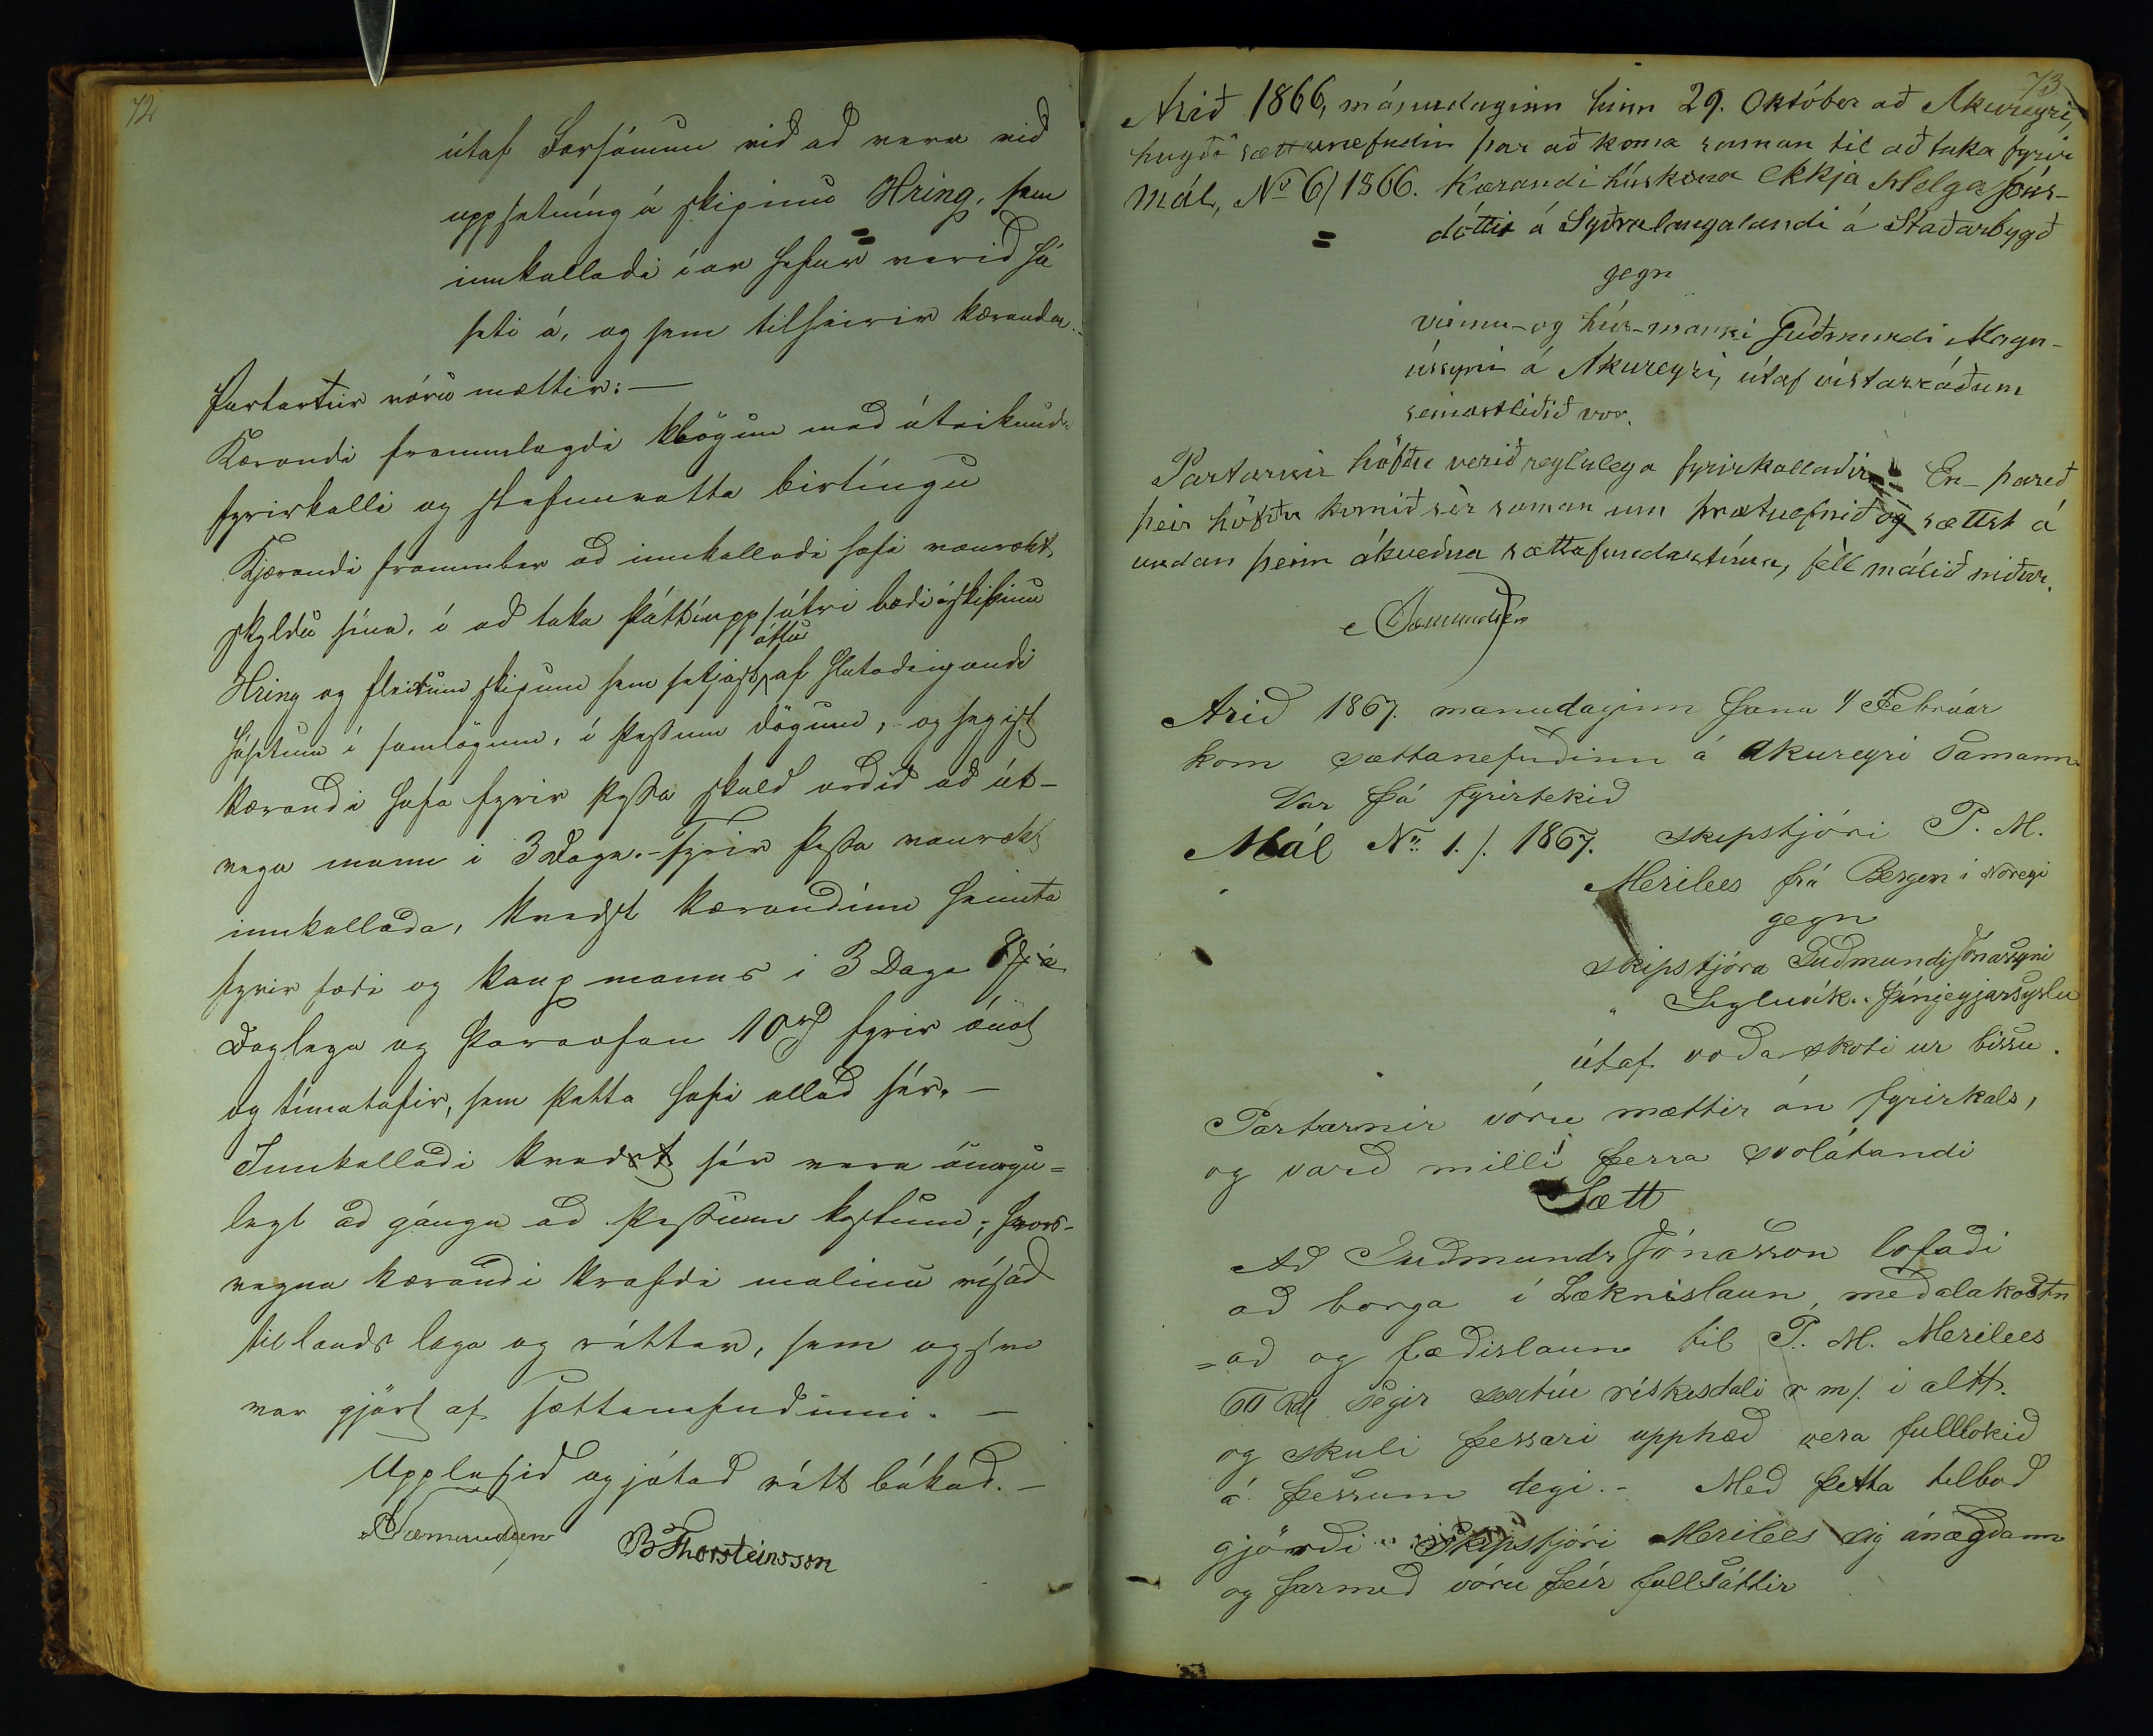 72
útaf Forsómun við að vera við
uppsetníng á skipinu Hring, sem
innkallaði í ár hefur verið há
seti á, og sem tilheirir kæranda.-
Partarnir vóru mættir: —
Kærandi frammlagði klögun með áteiknuðu
fyrirkalli og stefnuvotta birtíngu
Kjærandi frammber að innkallaði hafi vanrækt
skyldu sína, í að taka þátt í uppsátri bæði á skipinu
Hring og fleirum skipum sem setjast áttu af hlutaðeigandi
hásetum í samlögum, í þessum dögum, og segist
kærandi hafa fyrir þessa skuld orðið að út-
vega mann í 3 Daga.- Fyrir þessa vanrækt
innkallaða, kveðst kærandinn heimta
fyrir fæði og kaup manns í 3 Daga
Daglega og þaraofan 10 rd fyrir ónot
og tímatafir, sem þetta hafi ollað sér. —
Innkallaði kveðst sér vera ómögu=
legt að gánga að þessum kostum; hvors-
vegna kærandi krafði malinu vísað
til lands laga og réttar, sem og svo
var gjört af sættanefndinni. —
Upplesið og játað rétt bókað. —
Sæmundsen
B Thorsteinsson
73
Arið 1866, mánudaginn hinn 29. Október að Akureyri,
hugði sættanefndin þar að koma saman til að taka fyrir
Mál, No 6/1866. Kærandi húskona Ekkja Helga Jóns-
= dóttir á Syðralaugalandi á Staðarbygð
gegn
vinnu- og hús-manni Guðmundi Magn-
ússyni á Akureyri, útaf vistarráðum
seinastliðið vor.
Partarnir höfðu verið reglulega fyrirkallaðir. En- þareð
þeir höfðu komið sèr saman um þrætuefnið og sættst á
undan þeim ákveðna sættafundartíma, féll málið niður.
Sæmundsen
Arið 1867. manudaginn þann 4 Febrúar
kom sættanefndinn á Akureyri Samann.
Var þá fyrirtekið
Mál No 1./. 1867. skipstjóri P. M.
Merilees frá Bergen í Noregi
gegn
skipstjóra Guðmundi Jónassyni
" Sigluvík.. Þíngeyjarsyslu
útaf voðaskoti ur bissu.
Partarnir vóru mættir án fyrirkals,
og varð milli þerra svolátandi
Sætt
Að Guðmundr Jónasson lofaði
að borga í Læknislaun, meðalakostn
=að og fæðislaun til P. M. Merilees
60 Rdl segir sextíu ríkisdali r m/. i altt.
og skuli þessari upphæð vera fulllokið
á þessum degi.- Með þetta tilboð
gjörði Skipstjóri Merilees sig ánægðann
og þarmeð vóru þeir fullsáttir